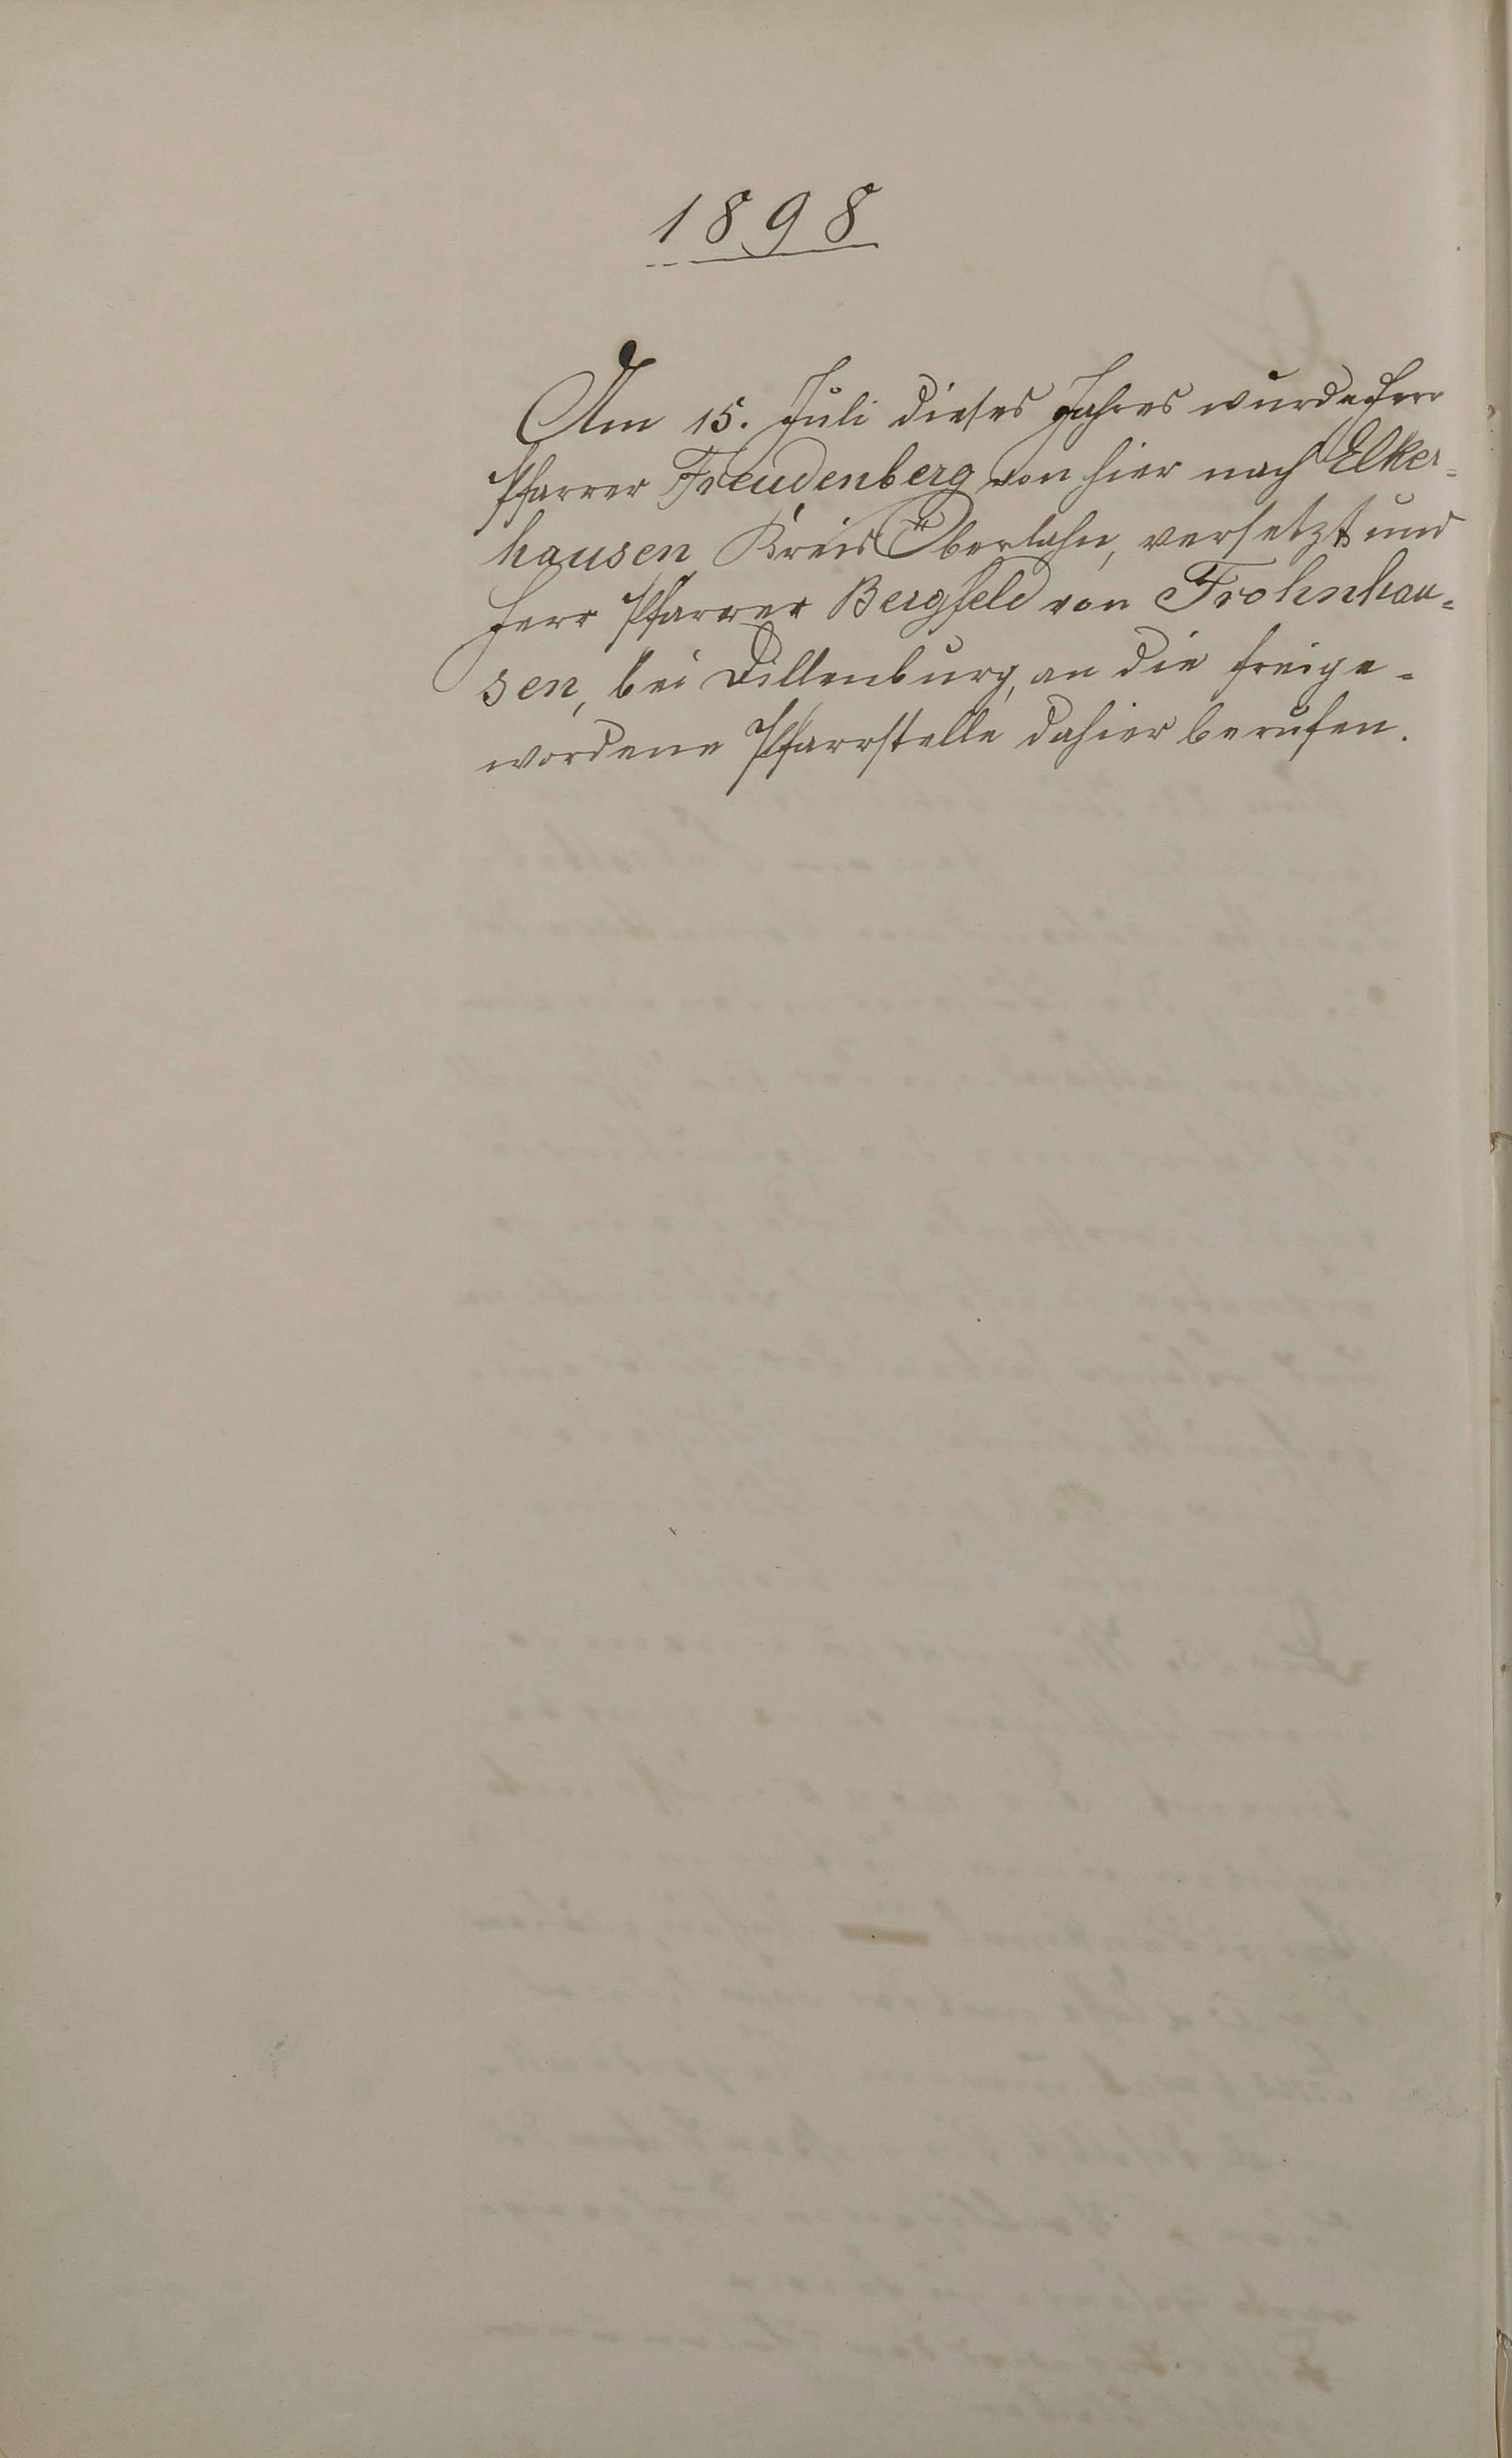 1898
Am 15. Juli dieses Jahres wurde Herr
Pfarrer Freudenberg von hier nach Elker=
hausen, Kreis Oberlahn, versetzt und
Herr Pfarrer Bergfeld von Frohnhau=
sen, bei Dillenburg, an die freige=
wordene Pfarrstelle dahier berufen.